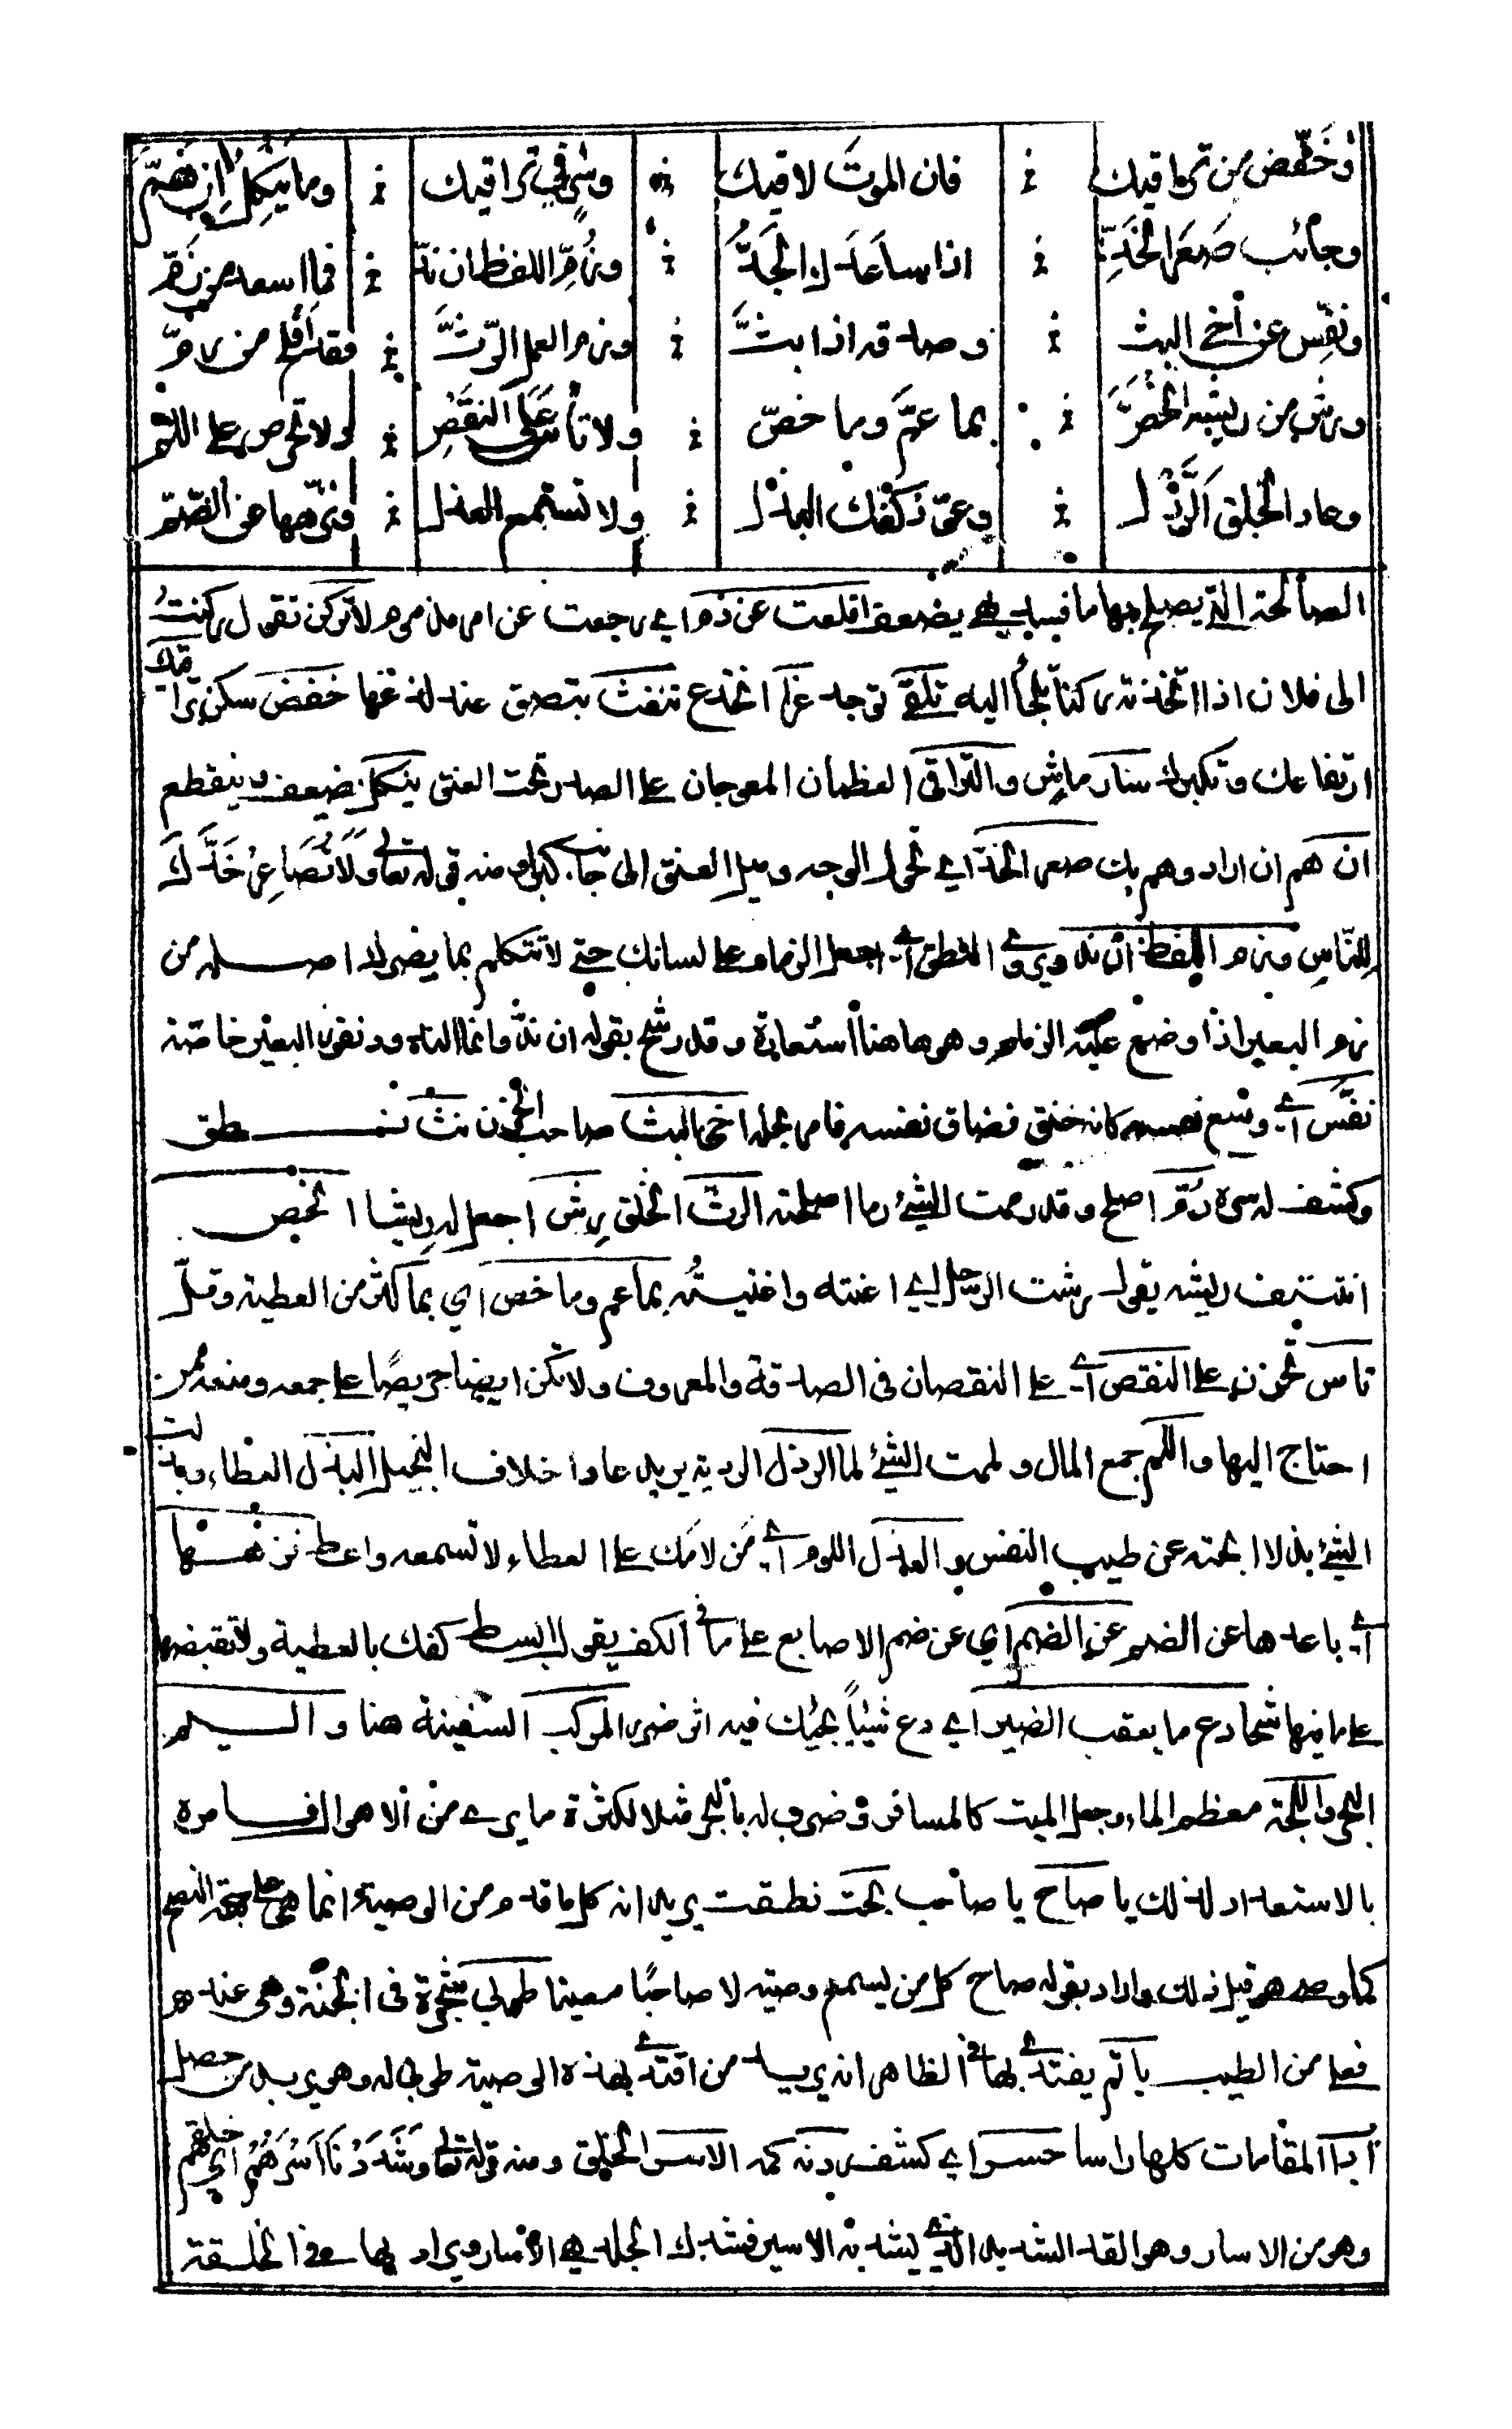 وخفّض من تراقيك فان الموت لاقيك وساري في تراقيك وما ينكل ان همّ
وجانب صعر الخدّ اذا ساعدك الجدّ وزمّ اللفظ ان ندّ فما اسعد من زمّ
ونفّس عن أخي البث وصدقه اذا بثّ ورم العمل الرثّ فقد أفلح من رمّ
ورش من ريشه انحصّ بما عمّ وما خصّ ولا تأس على النقص ولا تحرص على اللمّ
وعاد الخلق الرذل وعوّد كفّك البذل ولا تستمع العذل ونزّهها عن الضّمّ
الصالحة التي يصلح بها ما فسد يضعف اقلعت عن ذم اي رجعت عن امر مذموم لا تركن تقول ركنت
الى فلان اذا اتخذته ركنا تلجأ اليه تلقى توجد غرّ انخدع تنفث بتصق عند لدغها خفض سكن تراقيك
ارتفاعك وتكبرك سار ماش والتراقي العظمان المعوجان على الصدر تحت العنق ينكل يضعف وينقطع
ان هم ان اراد وهم بك صعر الخد اي تحول الوجه وميل العنق الى جانب كبرا ومنه قوله تعالى ولا تصاعر خدك
للناس وزم اللفظ ان ند اي اجعل الزمام على لسانك حتى لا تتكلم بما يضرك اصله من
زم البعير اذا وضع عليه الزمام وهو هاهنا استعارة وقد رشح بقوله ان ند وانما الند ود نفور البعير خاصة
نفس اي وسع نفسه كانه خنق فضاق نفسه فامر بحله اخي البث صاحب الحزن نث نطق
وكشف له سره رم اصلح وقد رممت الشيء رما اصلحته الرث الخلق رش اجعل له ريشا انحص
انتتف ريشه يقول رشت الرجل اي اغنته واغنيته بما عم وما خص اي بما كثر من العطية وقل
تاس تحزن على النقص اي على النقصان في الصدقة والمعروف ولا تكن ايضا حريصا على جمعه ومنعه ممن
احتاج اليها واللم جمع المال ولممت الشيء لما الرذل الردي يريد عاد اخلاف البخيل البذل العطاء وبذلت
الشيء بذلا ابحته عن طيب النفس والعذل اللوم اي من لامك على العطاء لا تسمعه واعط نزهها
اي باعدها عن الضم عن الضم اي عن ضم الاصابع على ما في الكف يقول ابسط كفك بالعطية ولا تقبضها
على ما فيها شحا دع ما يعقب الضير اي دع شيئا يجيئك فيه اثر ضرر المركب السفينة هنا و اليم
البحر واللجة معظم الماء وجعل الميت كالمسافر وضرب له بالبحر مثلا لكثرة ما يرى من الاهوال فامره
بالاستعداد لذلك يا صاح يا صاحب بحت نطقت يريد انه كل ما قدم من الوصية انما هي على جهة النصح
قبل ذلك واراد بقوله صاح كل من يسمع وصيته لا صاحبا معينا طوبى شجرة في الجنة وهي عندهم
فعلى من الطيب ياتم يقتدي بها في الظاهر انه يريد من اقتدى بهذه الوصية طوبى له وهو يريد من حصل
المقامات كلها راسا حسر اي كشف ردنه كمه الاسر الخلق ومنه قوله تعالى وشددنا اسرهم اي خلقهم
وهو من الاسار وهو القد الشديد الذي يشد به الاسير فشد بك الجلد هي الاسار ويراد بها في الخلقة